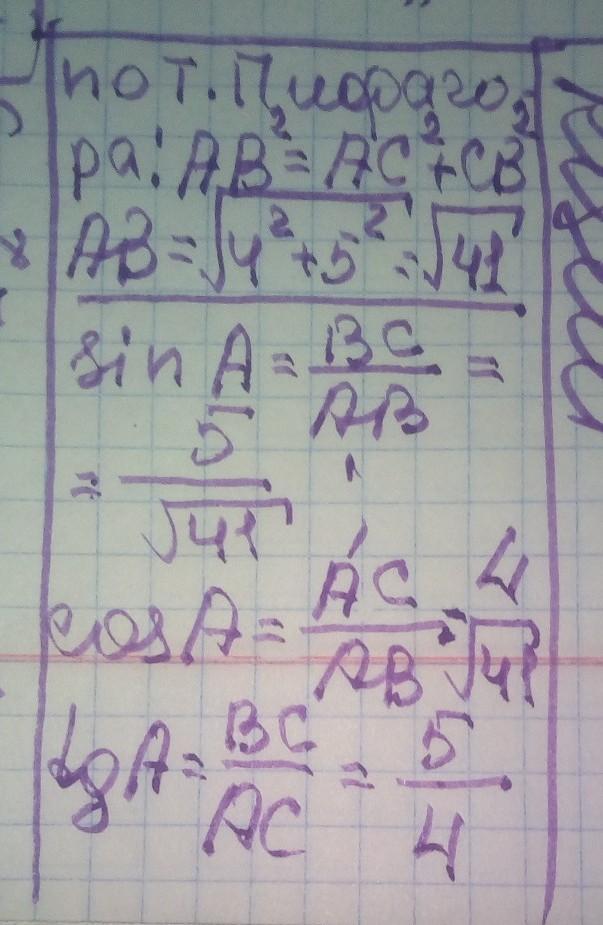 по т. Пифаго
ра: AB² = AC² + CB²
AB = √4² + 5² = √41
sin A = BC/AB =
= 5/√41
cos A = AC/AB = 4/√41
tg A = BC/AC = 5/4